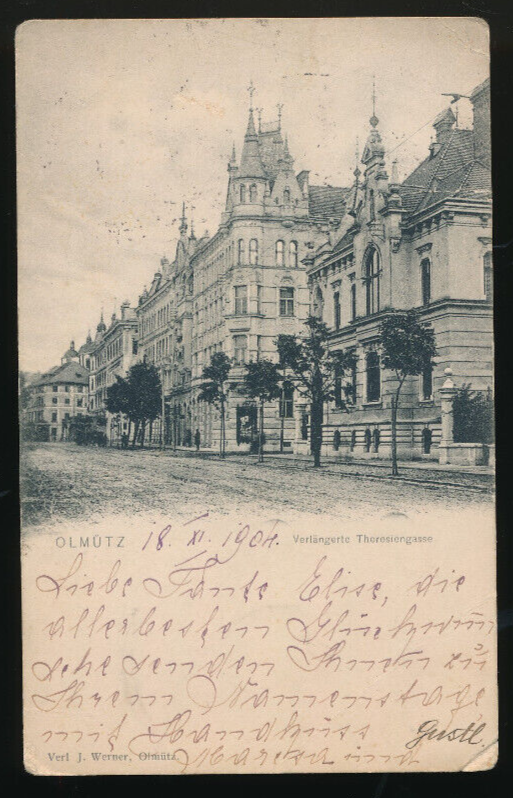 OLMÜTZ 18. XI. 1904. Verlängerte Theresiengasse
Liebe Tante Elise, die
allerbesten Glückwün
sche senden Ihnen zu
Ihrem Namenstage
mit Handkuss Gustl.
Verl J. Werner, Olmütz. Maresa und